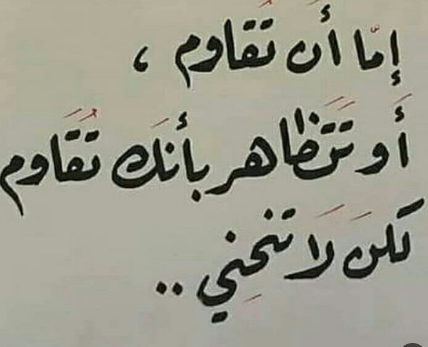 إمّا أَن تُقَاوم ،
أَو تَتَظاهر بأنَك تُقَاوم
لكنَ لَا تنحِني ..